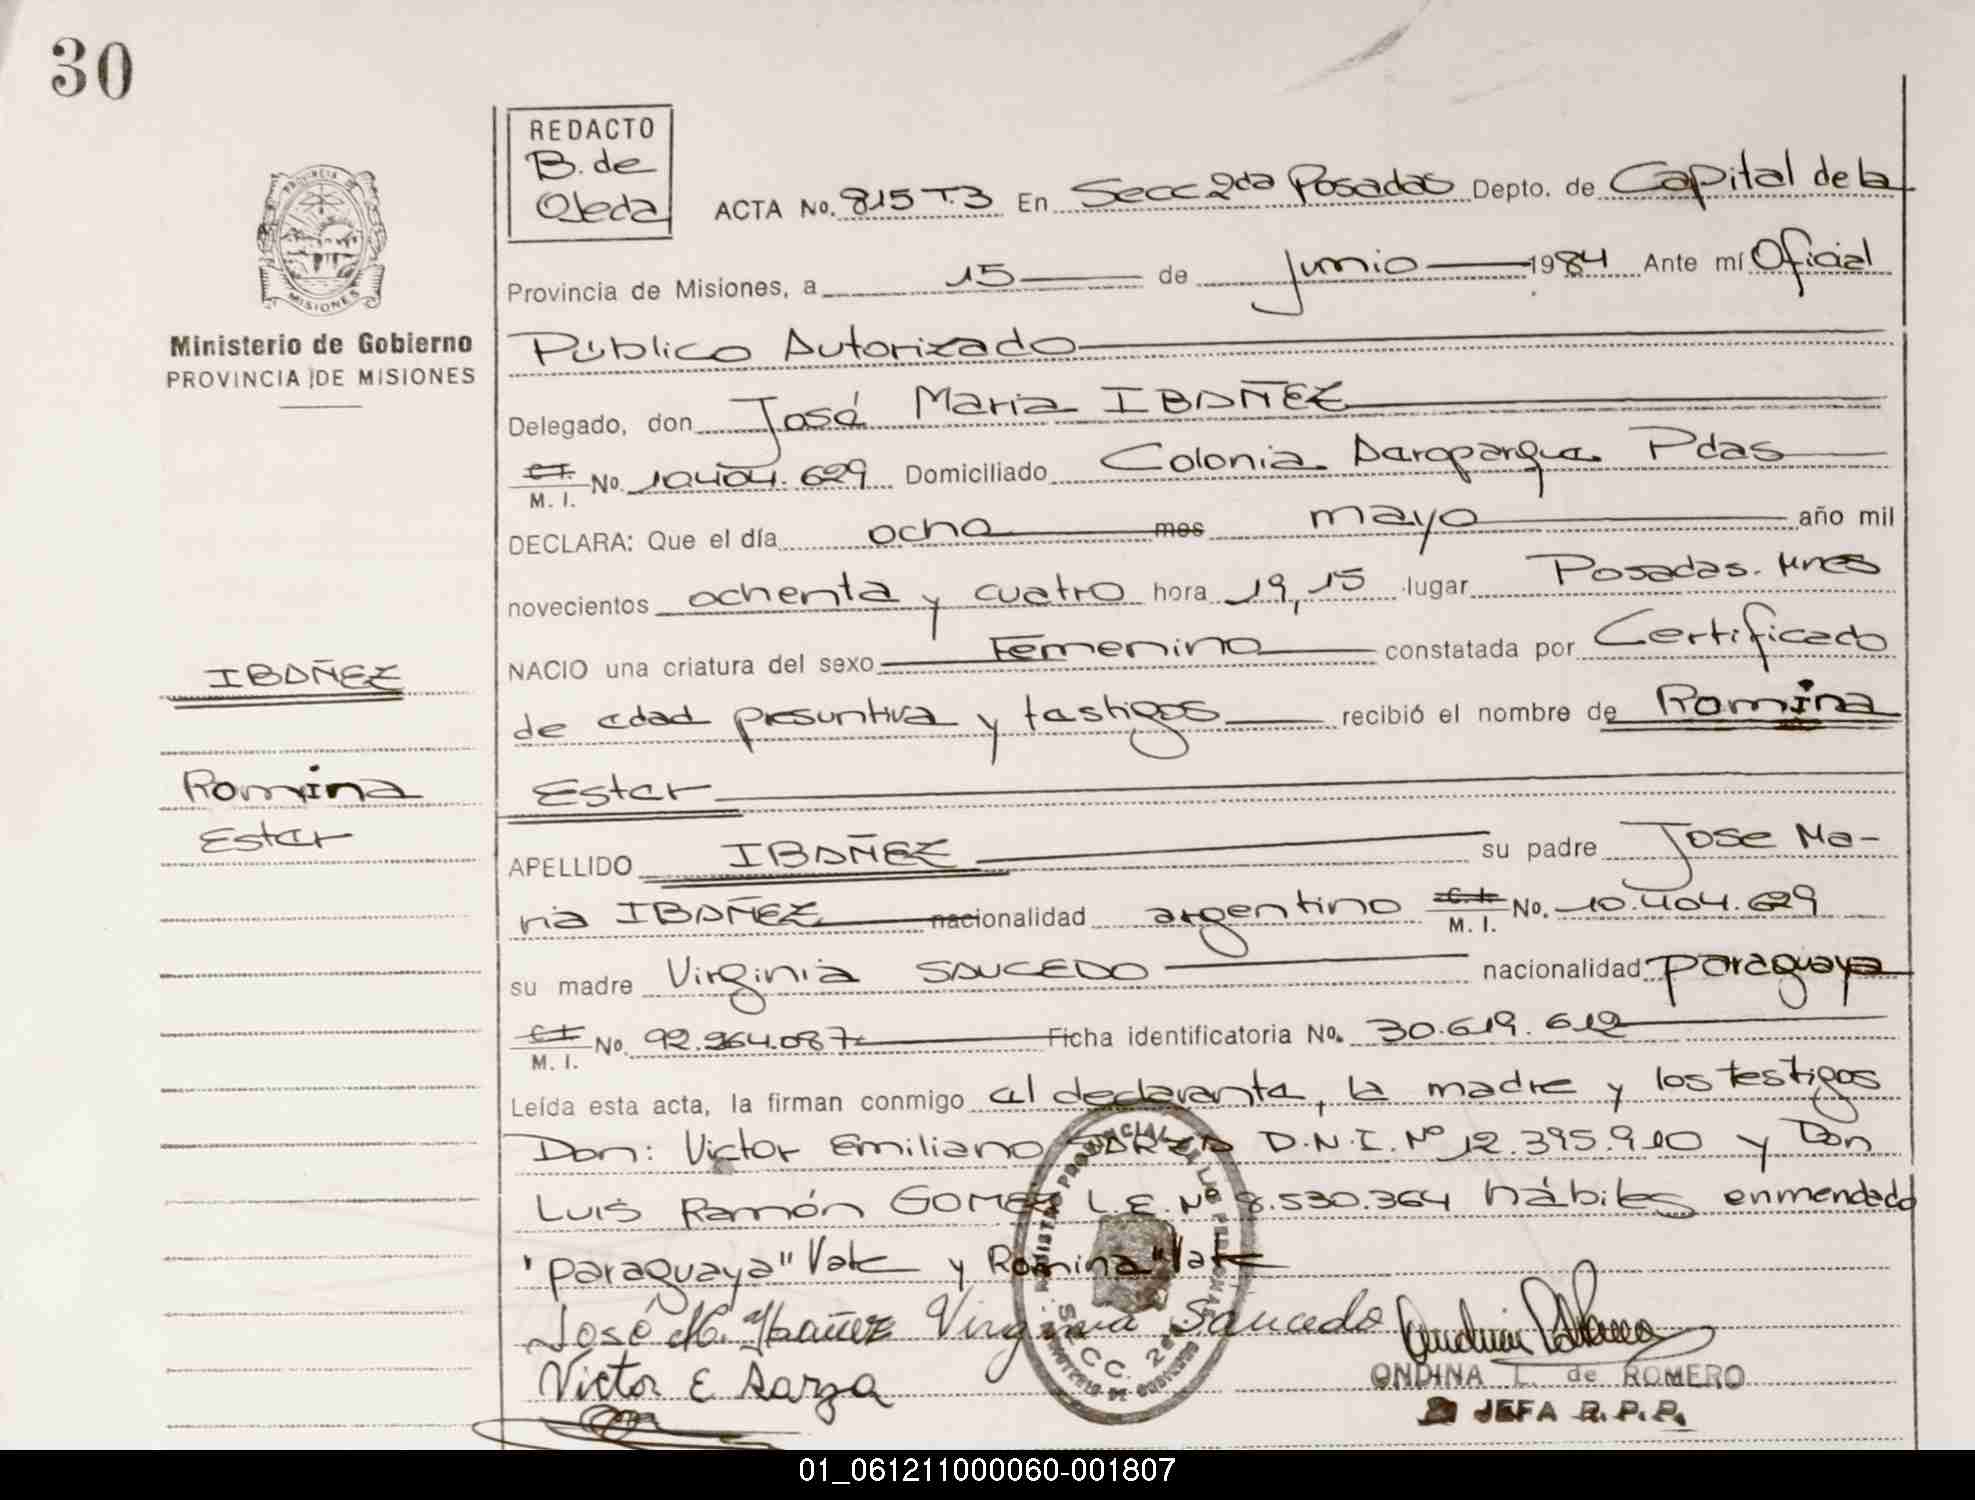 30
REDACTO
B. de
Ojeda
ACTA No. 815 T.3 En Secc 2da Posadas Depto. de Capital de la
Provincia de Misiones, a 15 de Junio 1984 Ante mí Oficial
Público Autorizado
Delegado, don José Maria IBAÑEZ
C.I. M. I. No. 10.404.629 Domiciliado Colonia Aaroparque Pdas
DECLARA: Que el día ocho mes mayo año mil
novecientos ochenta y cuatro hora 19,15 lugar Posadas. Mnes
NACIO una criatura del sexo Femenino constatada por Certificado
de edad presuntiva y testigos recibió el nombre de Romina
Ester
APELLIDO IBAÑEZ su padre Jose Ma-
ria IBAÑEZ nacionalidad argentino C.I. M. I. No. 10.404.629
su madre Virginia SAUCEDO nacionalidad paraguaya
C I M. I. No. 92.264.087 Ficha identificatoria No. 30.619.612
Leída esta acta, la firman conmigo el declarante, la madre y los testigos
Don: Victor Emiliano SARZA D.N.I. Nº 12.395.910 y Don
Luis Ramón GOMEZ L.E. Nº 8.530.364 hábiles enmendado
"paraguaya" Vale y Romina" Vale
José M. Ibañez Virginia Saucedo
Victor E Sarza
ONDINA L. de ROMERO
JEFA R.P.P.
PROVINCIA DE
MISIONES
Ministerio de Gobierno
PROVINCIA DE MISIONES
IBAÑEZ
Romina
Ester
REGISTRO PROVINCIAL DE LAS PERSONAS
SECC. 2da
MINISTERIO DE GOBIERNO
01_061211000060-001807